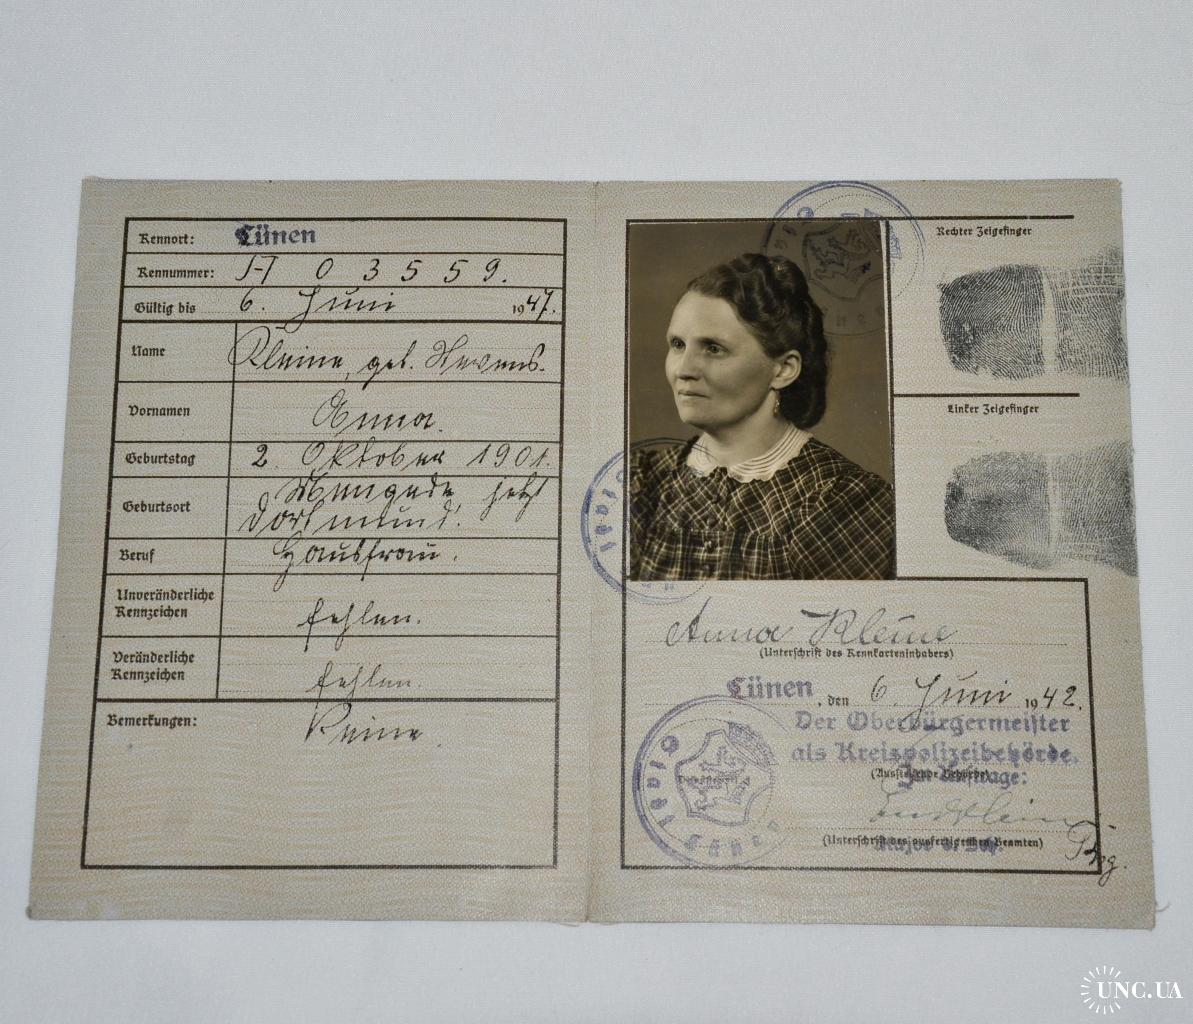 Kennort: Lünen
Kennummer: I-T 0 3 5 5 9.
Gültig bis 6. Juni 1947.
Name Kleine, geb.
Vornamen Anna.
Geburtstag 2. Oktober 1901.
Geburtsort Mengede jetzt
Dortmund.
Beruf Hausfrau.
Unveränderliche
Kennzeichen fehlen.
Veränderliche
Kennzeichen fehlen.
Bemerkungen: Keine
Rechter Zeigefinger
Linker Zeigefinger
Anna Kleine
(Unterschrift des Kennkarteninhabers)
Lünen, den 6. Juni 1942.
Der Oberbürgermeister
als Kreispolizeibehörde.
(Ausstellende Behörde)
Im Auftrage:
(Unterschrift des ausfertigenden Beamten)
Major d. Sch.
Stadt Lünen
Stadt
UNC.UA